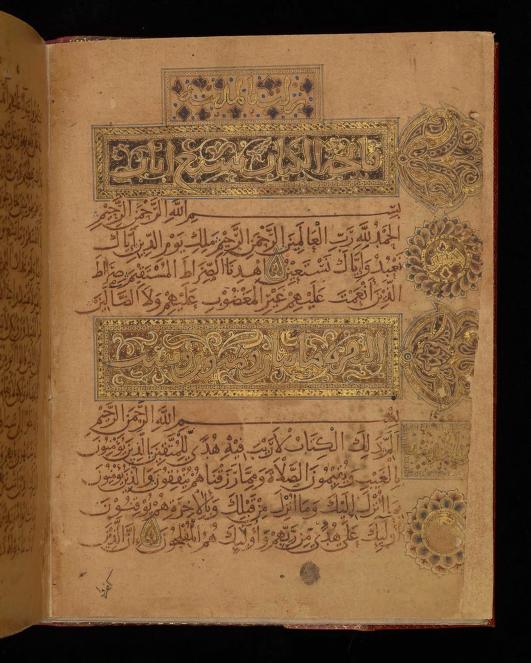 فاتحة الكتاب سبع ايات
بِسْمِ اللَّهِ الرَّحْمَنِ الرَّحِيمِ
الْحَمْدُ لِلَّهِ رَبِّ الْعَالَمِينَ الرَّحْمَنِ الرَّحِيمِ مَلِكِ يَوْمِ الدِّينِ إِيَّاكَ
نَعْبُدُ وَإِيَّاكَ نَسْتَعِينُ اهْدِنَا الصِّرَاطَ الْمُسْتَقِيمَ صِرَاطَ
الَّذِينَ أَنْعَمْتَ عَلَيْهِمْ غَيْرِ الْمَغْضُوبِ عَلَيْهِمْ وَلَا الضَّالِّينَ
بِسْمِ اللَّهِ الرَّحْمَنِ الرَّحِيمِ
الم ذَلِكَ الْكِتَابُ لَا رَيْبَ فِيهِ هُدًى لِلْمُتَّقِينَ الَّذِينَ يُؤْمِنُونَ
بِالْغَيْبِ وَيُقِيمُونَ الصَّلَاةَ وَمِمَّا رَزَقْنَاهُمْ يُنْفِقُونَ وَالَّذِينَ يُؤْمِنُونَ
بِمَا أُنْزِلَ إِلَيْكَ وَمَا أُنْزِلَ مِنْ قَبْلِكَ وَبِالْآخِرَةِ هُمْ يُوقِنُونَ
أُولَئِكَ عَلَى هُدًى مِنْ رَبِّهِمْ وَأُولَئِكَ هُمُ الْمُفْلِحُونَ إِنَّ الَّذِينَ
كفروا